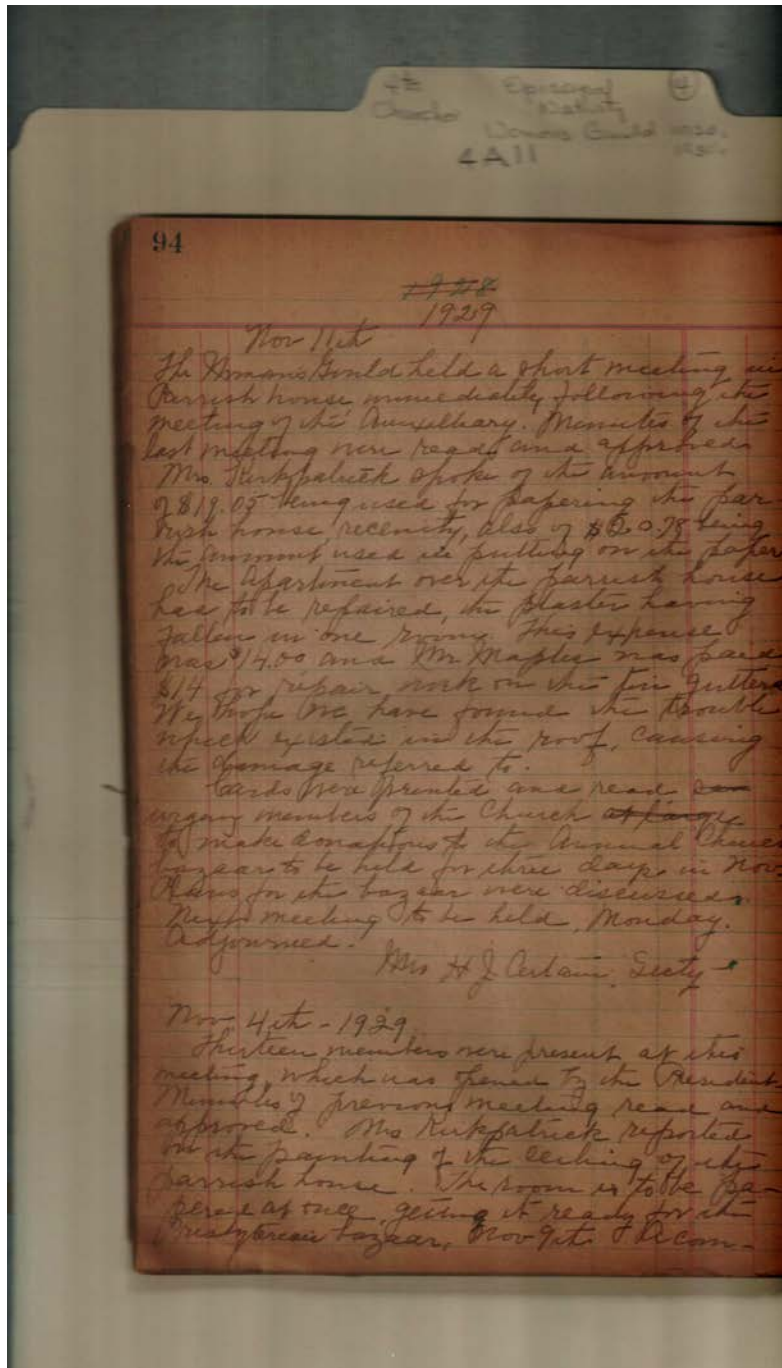 4th Episcopal 4
Nativity
Womans Guild
4A11
94
1928
1929
Nov 11th
The Woman's Guild held a short meeting in
Parrish house immediately following the
meeting of the Auxilliary. Minutes of the
last meeting were read and approved
Mrs. Kirkpatrick spoke of the amount
of $19.05 being used for papering the par
rish house, recently, also of being
the ammount used in putting on the paper
The Apartment over the parrish house
has to be repaired, the plaster having
fallen in one room. This expense
was $14.00 and Mr Maples was paid
$14 for repair work on the tin gutters
We hope we have found the trouble
which existed in the roof, causing
the damage referred to.
Cards were printed and read
urging members of the Church at large
to make donations to the Annual
bazaar to be held for three days in Nov.
Plans for the bazaar were discussed.
Next meeting to be held, Monday.
Adjourned.
Mrs H J Certain, Secty
Nov. 4th - 1929
Thirteen members were present at this
meeting, which was opened by the President.
Minutes of previous meeting read and
approved. Mrs Kirkpatrick reported
on the painting of the ceiling of the
parrish house. The room is to be pa-
pered at once, getting it ready for the
Presbyterian bazaar, Nov 9th. com-